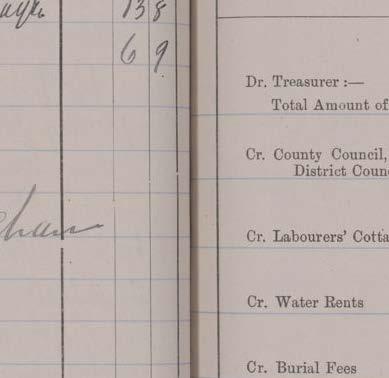 13 8
6 9
Dr. Treasurer :—
Total Amount of
Cr. County Council,
District Coun
Cr. Labourers' Cotta
Cr. Water Rents
Cr. Burial Fees